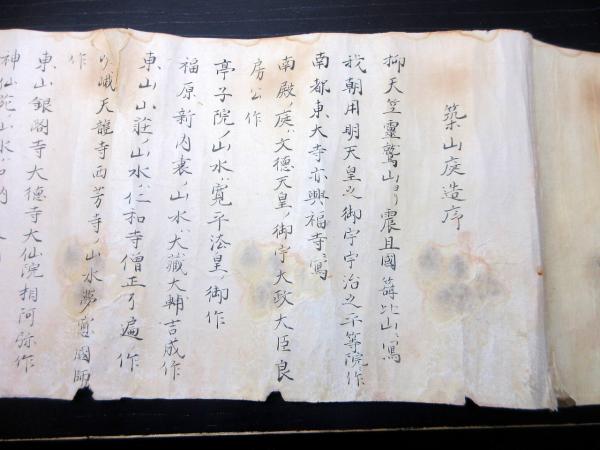 築山庭造序
抑天竺靈鷲山ヨリ震旦國ニ寫
我朝用明天皇之御宇宇治之平等院作
南都東大寺亦興福寺寫
南殿ノ庭ハ文德天皇ノ御宇大政大臣良
房公作
亭子院ノ山水寛平法皇ノ御作
福原新内裏ノ山水ハ大藏大輔吉成作
東山小荘ノ山水ハ仁和寺僧正 遍作
嵯峨天龍寺西芳寺ノ山水夢窓國師
作
東山銀閣寺大徳寺大仙院相阿弥作
神仙苑ノ山水